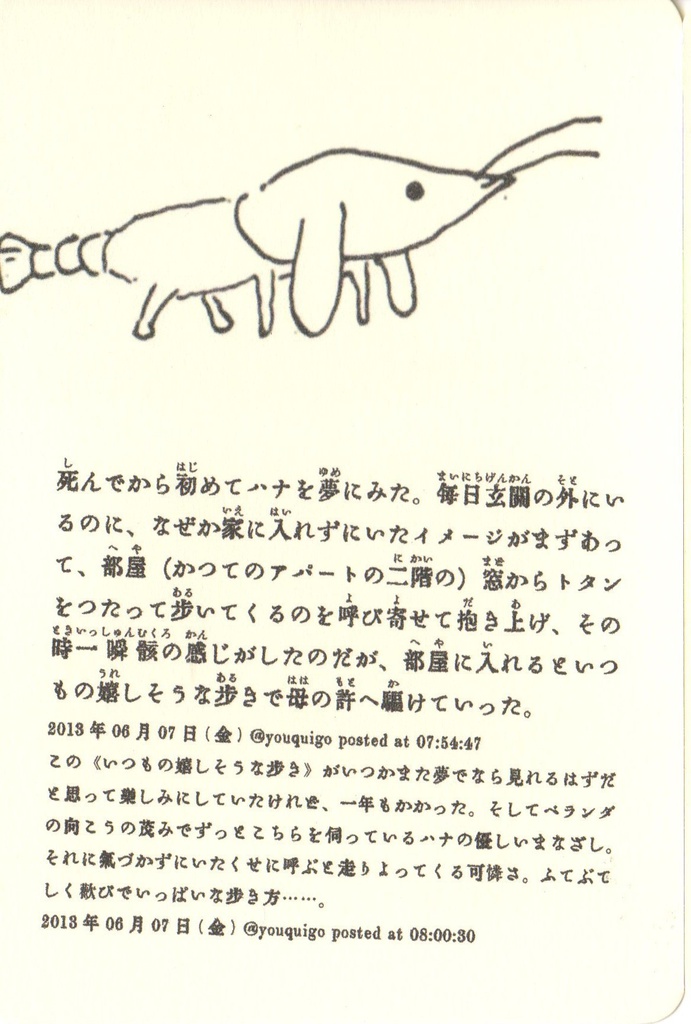 死んでから初めてハナを夢にみた。毎日玄關の外にい
るのに、なぜか家に入れずにいたイメージがまずあっ
て、部屋（かつてのアパートの二階の）窓からトタン
をつたって歩いてくるのを呼び寄せて抱き上げ、その
時一瞬骸の感じがしたのだが、部屋に入れるといつ
もの嬉しそうな歩きで母の許へ驅けていった。
2013年06月07日(金) @youquigo posted at 07:54:47
この《いつもの嬉しそうな歩き》がいつかまた夢でなら見れるはずだ
と思って樂しみにしていたけれど、一年もかかった。そしてベランダ
の向こうの茂みでずっとこちらを伺っているハナの優しいまなざし。
それに氣づかずにいたくせに呼ぶと走りよってくる可憐さ。ふてぶて
しく歓びでいっぱいな歩き方……。
2013年06月07日(金) @youquigo posted at 08:00:30